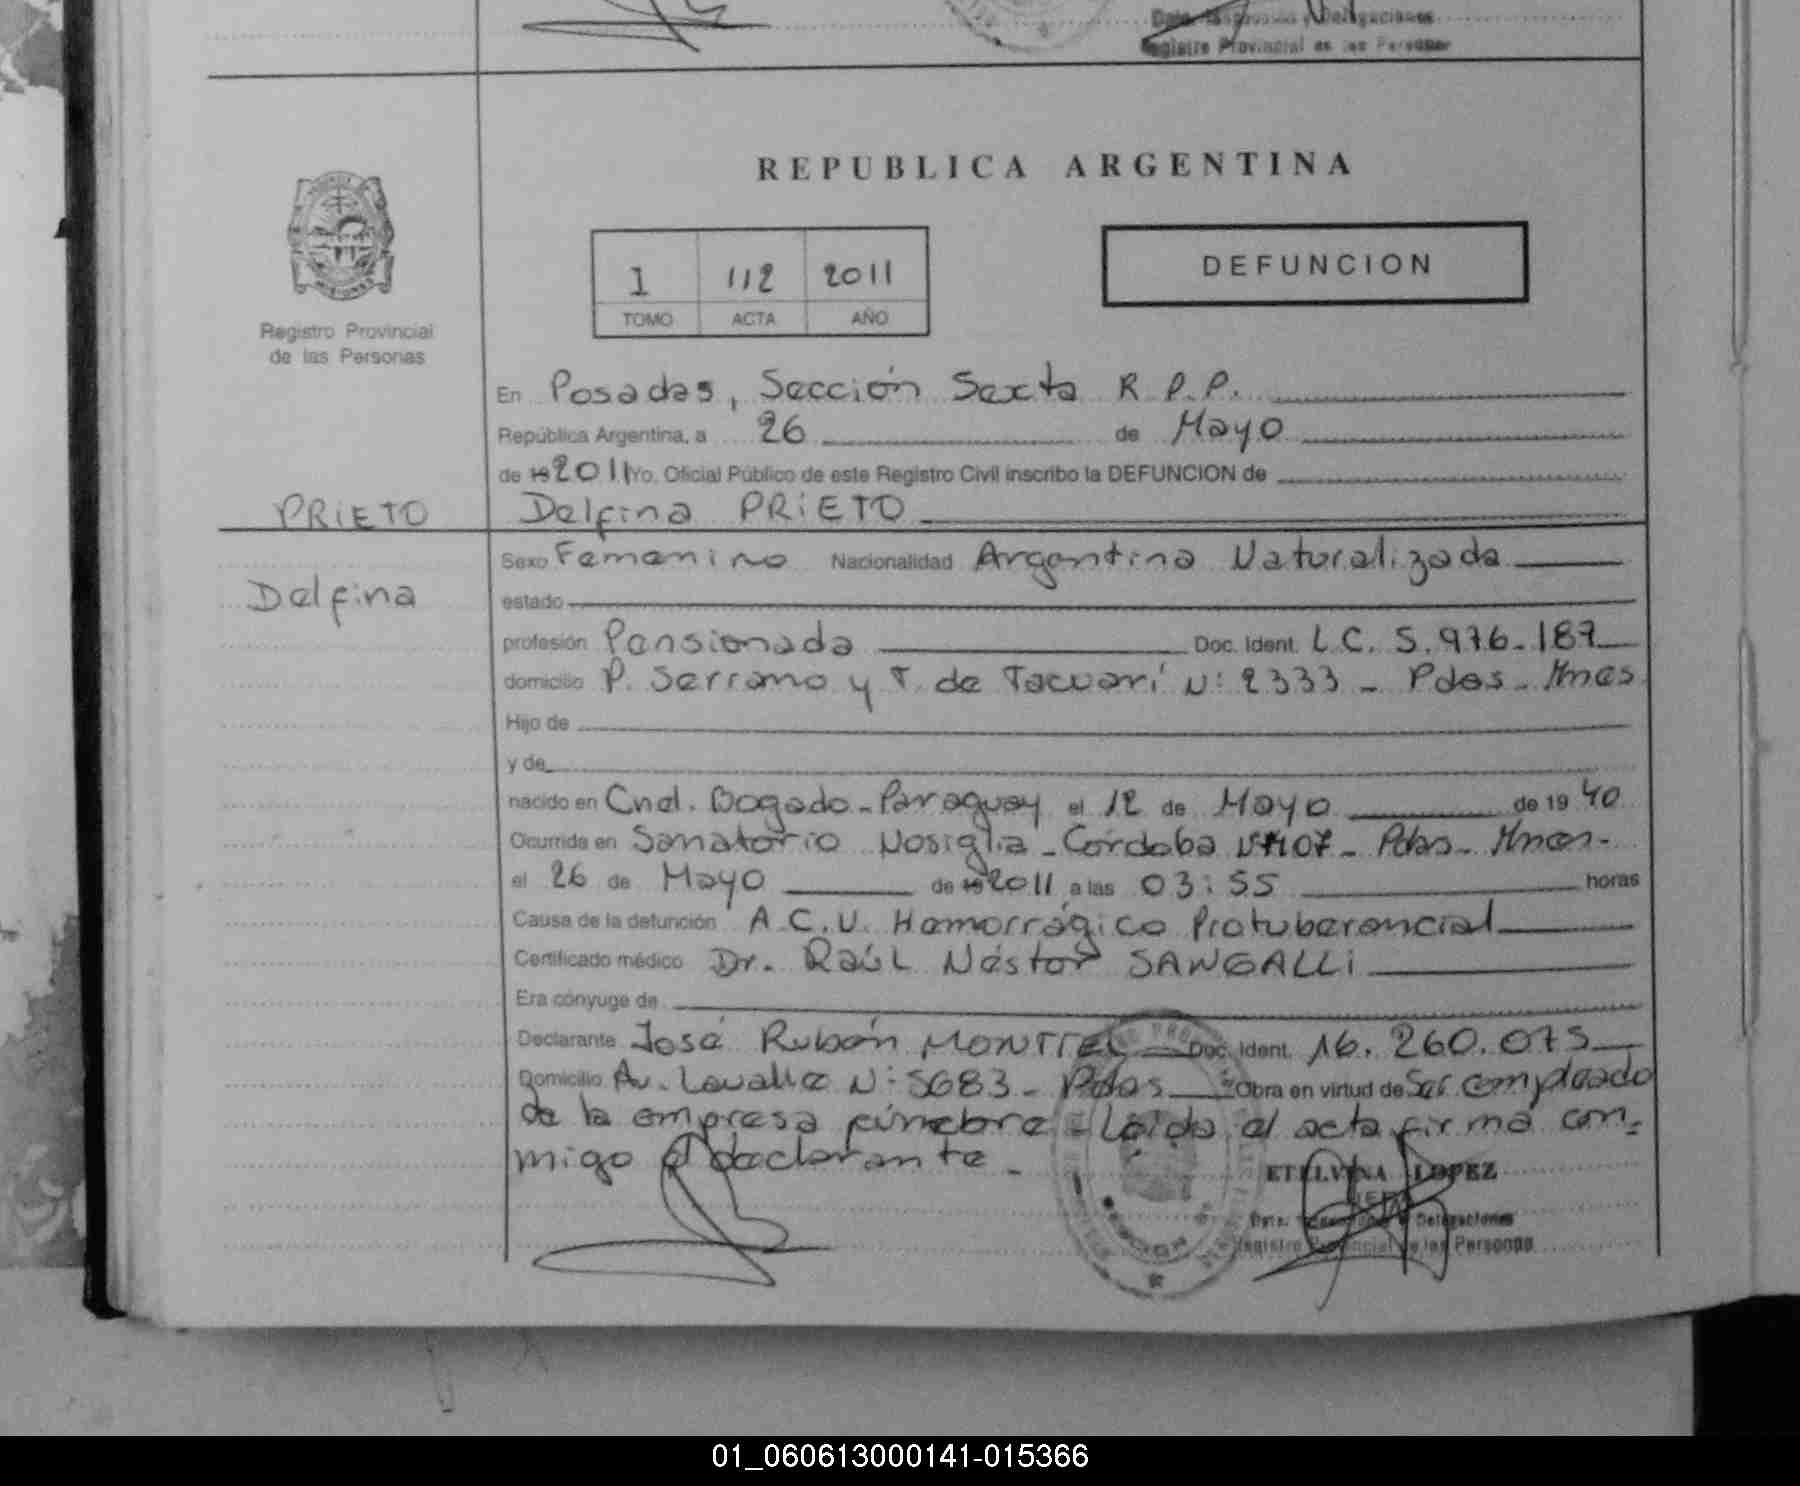 Registro Provincial de las Personas
REPUBLICA ARGENTINA
1 112 2011
TOMO ACTA AÑO
DEFUNCION
Registro Provincial
de las Personas
En Posadas, Sección Sexta R.P.P.
República Argentina, a 26 de Mayo
de 19 2011 Yo, Oficial Público de este Registro Civil inscribo la DEFUNCION de
PRIETO
Delfina PRIETO
Delfina
Sexo Femenino Nacionalidad Argentina Naturalizada
estado
profesión Pensionada Doc. Ident. L.C. 5.976.187
domicilio P. Serrano y T. de Tacuarí N: 2333 - Pdas - Mnes
Hijo de
y de
nacido en Cnel. Bogado - Paraguay el 12 de Mayo de 19 40
Ocurrida en Sanatorio Nosiglia - Córdoba - Pdas - Mnes -
el 26 de Mayo de 19 2011 a las 03:55 horas
Causa de la defunción A.C.V. Hemorrágico Protuberancial
Certificado médico Dr. Raúl Néstor SANGALLI
Era cónyuge de
Declarante José Rubén Doc. Ident. 16.260.075
Domicilio Av. Lavalle N: 5683 - Pdas Obra en virtud de Ser empleado
de la empresa fúnebre - Leída el acta firma con=
migo el declarante -
ETELVINA LOPEZ
JEFA
Delegaciones
Registro Provincial de las Personas
01_060613000141-015366